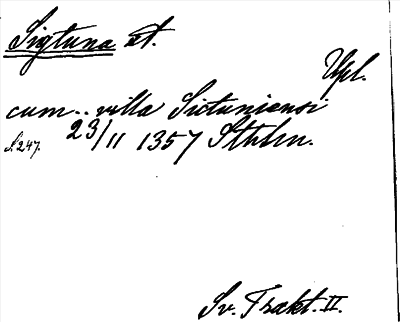 Sigtuna st.
Upl.
cum.. villa Sictuniensi
S. 247. 23/11 1357 Sthlm.
Sv. Trakt. II.